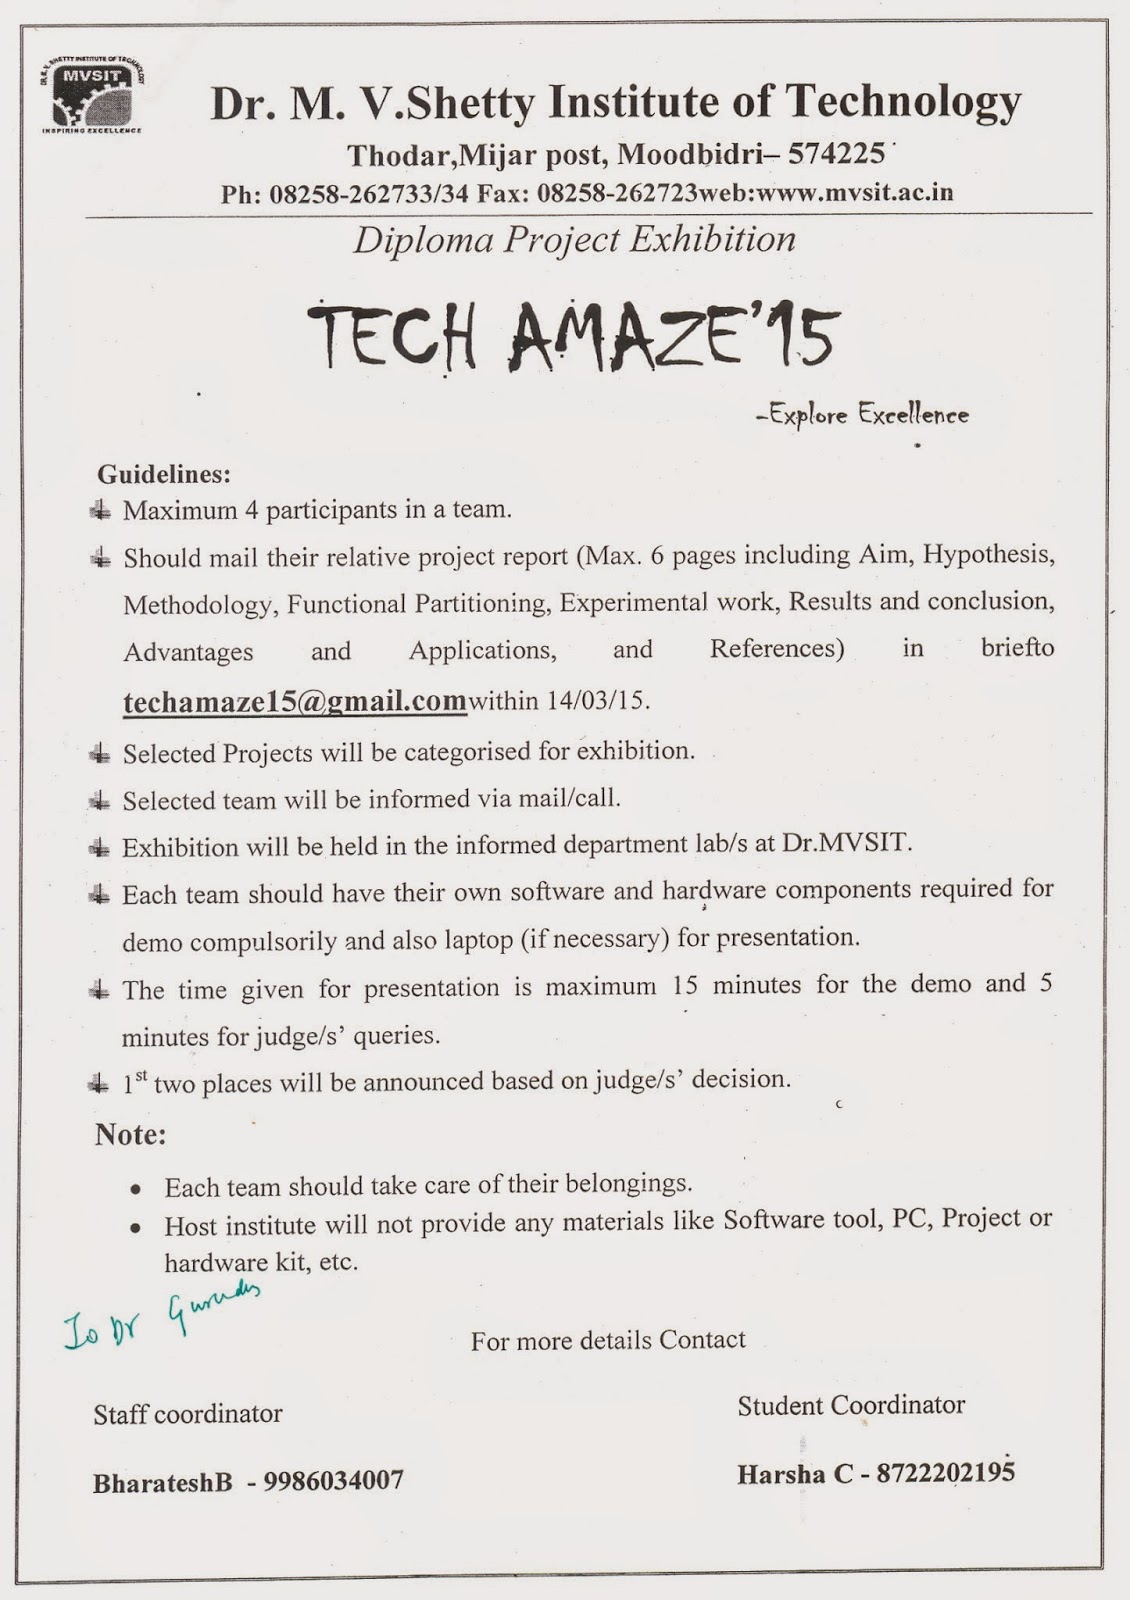 DR. M. V. SHETTY INSTITUTE OF TECHNOLOGY
MVSIT
INSPIRING EXCELLENCE
Dr. M. V.Shetty Institute of Technology
Thodar,Mijar post, Moodbidri– 574225
Ph: 08258-262733/34 Fax: 08258-262723web:www.mvsit.ac.in
Diploma Project Exhibition
TECH AMAZE'15
-Explore Excellence
Guidelines:
Maximum 4 participants in a team.
Should mail their relative project report (Max. 6 pages including Aim, Hypothesis,
Methodology, Functional Partitioning, Experimental work, Results and conclusion,
Advantages and Applications, and References) in briefto
techamaze15@gmail.comwithin 14/03/15.
Selected Projects will be categorised for exhibition.
Selected team will be informed via mail/call.
Exhibition will be held in the informed department lab/s at Dr.MVSIT.
Each team should have their own software and hardware components required for
demo compulsorily and also laptop (if necessary) for presentation.
The time given for presentation is maximum 15 minutes for the demo and 5
minutes for judge/s' queries.
1st two places will be announced based on judge/s' decision.
Note:
• Each team should take care of their belongings.
• Host institute will not provide any materials like Software tool, PC, Project or
hardware kit, etc.
To Dr
For more details Contact
Staff coordinator
Student Coordinator
BharateshB - 9986034007
Harsha C - 8722202195